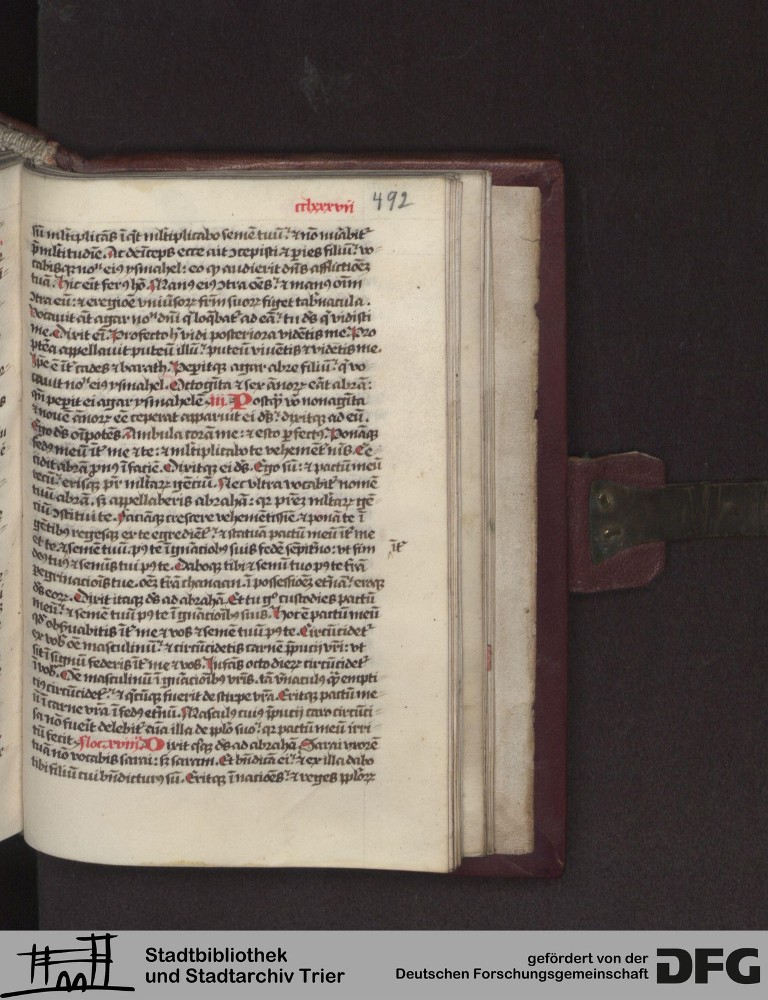 cclxxxvii 492
sũ mltiplicãs ĩqt mltiplicabo semẽ tuũ: ⁊ nõ nũ̃abit᷑
p̃ mltitudiẽ. Ac deĩceps ecce ait ↄcepisti ⁊ paries filiũ: vo
cabisqꝫ noᵐ eiꝰ ysmahel: eo ꝙ audierit dñs afflictioẽꝫ
tuã. Hic erit ferꝰ hõ. Manꝰ eiꝰ ↄtra oẽs: ⁊ manꝰ oĩm
ↄtra eũ: ⁊ e regioẽ vniũsoꝝ frm̃ suoꝝ figet tab̾nacula.
Vocauit aũt agar noᵐ dñi q̇ loq̃bat᷑ ad eã: tu dš q̇ vidisti
me. Dixit em̃. Profecto h̾ vidi posteriora vidẽtis me. Pro
pt̾ea appellauit puteũ illũ: puteũ viuẽtis ⁊ vidẽtis me.
Ipe ẽ ĩt᷑ cades ⁊ barath. Pepitqꝫ agar abre filiũ: q̇ vo
cauit noᵐ eiꝰ ysmahel. Octogĩta ⁊ sex ãnoꝝ erãt abrã:
qñ pepit ei agar ysmahelẽ. iii. Postq̃ vo nonagĩta
⁊ nouẽ ãnoꝝ eẽ ceperat apparuit ei dš: dixitqꝫ ad eũ.
Ego dš oĩpotẽs. Ambula corã me: ⁊ esto pfectꝰ. Ponãqꝫ
fedꝰ meũ ĩt᷑ me ⁊ te: ⁊ mltiplicabo te vehemẽt᷑ nĩs. Ce
cidit abrã pnꝰ ĩ faciẽ. Dixitqꝫ ei dš. Ego sũ: ⁊ pactũ meũ
tecũ: erisqꝫ pr̃ mltaꝝ gẽtiũ. Nec vltra vocabit᷑ nomẽ
tuũ abrã. sꝫ appellaberis abrahã: qꝛ prẽꝫ mltaꝝ gẽ
tiũ ↄstitui te. Faciãqꝫ crescere vehemẽtissie ⁊ ponã te ĩ
gẽtibꝰ regesqꝫ ex te egrediẽt᷑: ⁊ statuã pactũ meũ ĩt᷑ me
et te. ⁊ semẽ tuũ. pꝰ te ĩ gñaciõibꝰ suis fede̾ sẽpit̾no: vt sim ĩt᷑
deꝰ tuꝰ ⁊ semĩs tui pꝰ te. Daboqꝫ tibi ⁊ semĩ tuo pꝰ te t̾rã
pegrinacioĩs tue. oẽꝫ t̾rã chanaan. ĩ possessioẽꝫ et̾nã: eroqꝫ
dš eoꝝ. Dixit itaqꝫ dš ad abrahã. Et tu gᵒ custodies pactũ
meũ: ⁊ semẽ tuũ pꝰ te ĩ gñaciõibꝰ suis. Hoc ẽ pactũ meũ
qď obs̾uabitis ĩt᷑ me ⁊ vos ⁊ semẽ tuũ pꝰ te. Circũcidet᷑
ex vob̾ oẽ masculinũ: ⁊ circũcidetis carnẽ p̃pucij vr̃i: vt
sit ĩ signũ federis ĩt᷑ me ⁊ vos. Infãs octo dieꝝ circũcidet᷑
ĩ vob̾. Oẽ masculinũ ĩ gñaciõibꝰ vr̃is. tã v̾naculꝰ ꝙ̃ empti
ciꝰ circũcidet᷑: ⁊ q̇cũqꝫ fuerit de stirpe vr̃a. Eritqꝫ pactũ me
ũ ĩ carne vr̃a ĩ fedꝰ et̾nũ. Masculꝰ cuiꝰ p̃pucij caro circũci
sa nõ fuerit delebit᷑ aĩa illa de pplõ suo: qꝛ pactũ meũ irri
tũ fecit. Dixit qꝫ dš ad abrahã. Sarai vxorẽ
tuã nõ vocabis sarai: sꝫ saram. Et bñdicã ei: ⁊ ex illa dabo
tibi filiũ cui bñdicturꝰ sũ. Eritqꝫ ĩ nacioẽs: ⁊ reges pploꝝ
Stadtbibliothek
und Stadtarchiv Trier
gefördert von der
Deutschen Forschungsgemeinschaft DFG